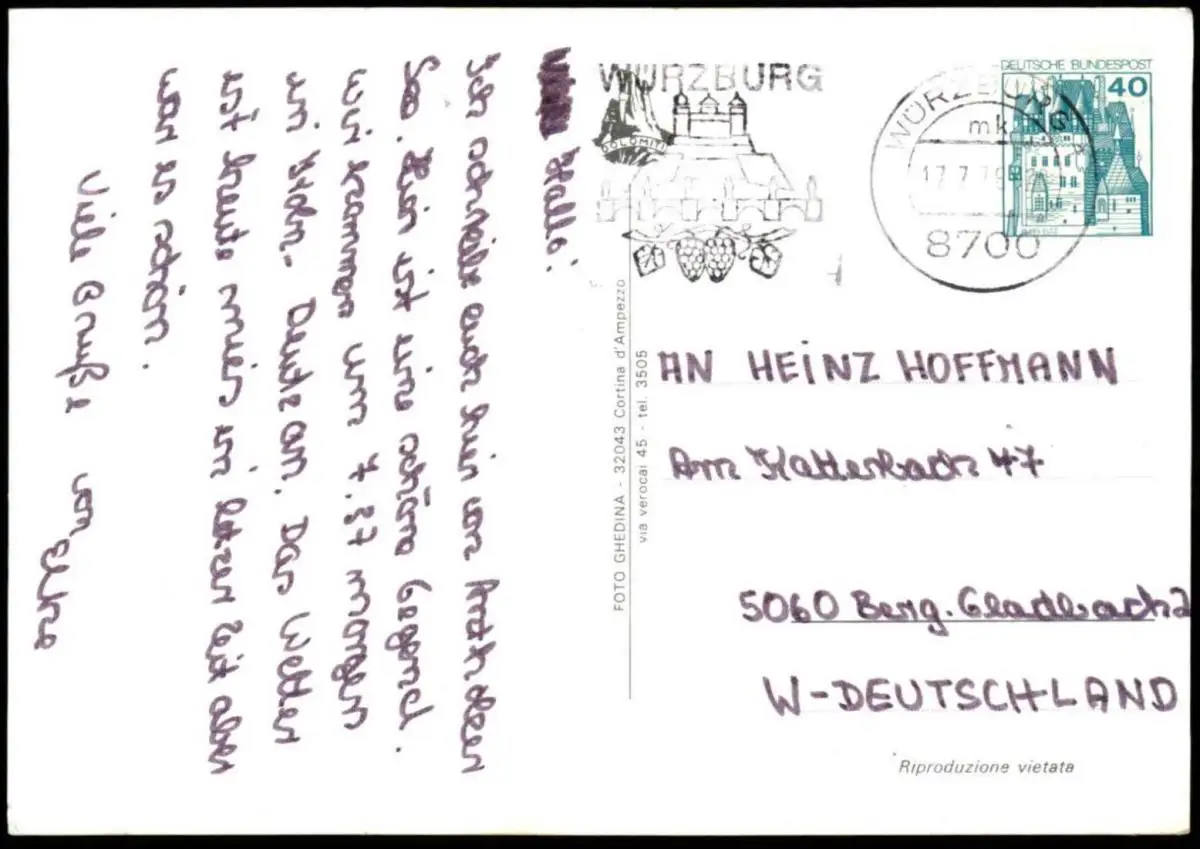 Hallo!
Ich schreibe euch hier vom
See. Hier ist eine schöne Gegend.
Wir kommen um 7.37 morgen
in Köln-Deutz an. Das Wetter
ist heute mies in letzer Zeit aber
war es schön.
Viele Grüße von
Elke
WÜRZBURG
DOLOMITI
WÜRZBURG
mk
17.7.79
8700
DEUTSCHE BUNDESPOST
40
FOTO GHEDINA - 32043 Cortina d'Ampezzo
via verocai 45 - tel. 3505
AN HEINZ HOFFMANN
Am Katterbach 47
5060 Berg. Gladbach 2
W-DEUTSCHLAND
Riproduzione vietata